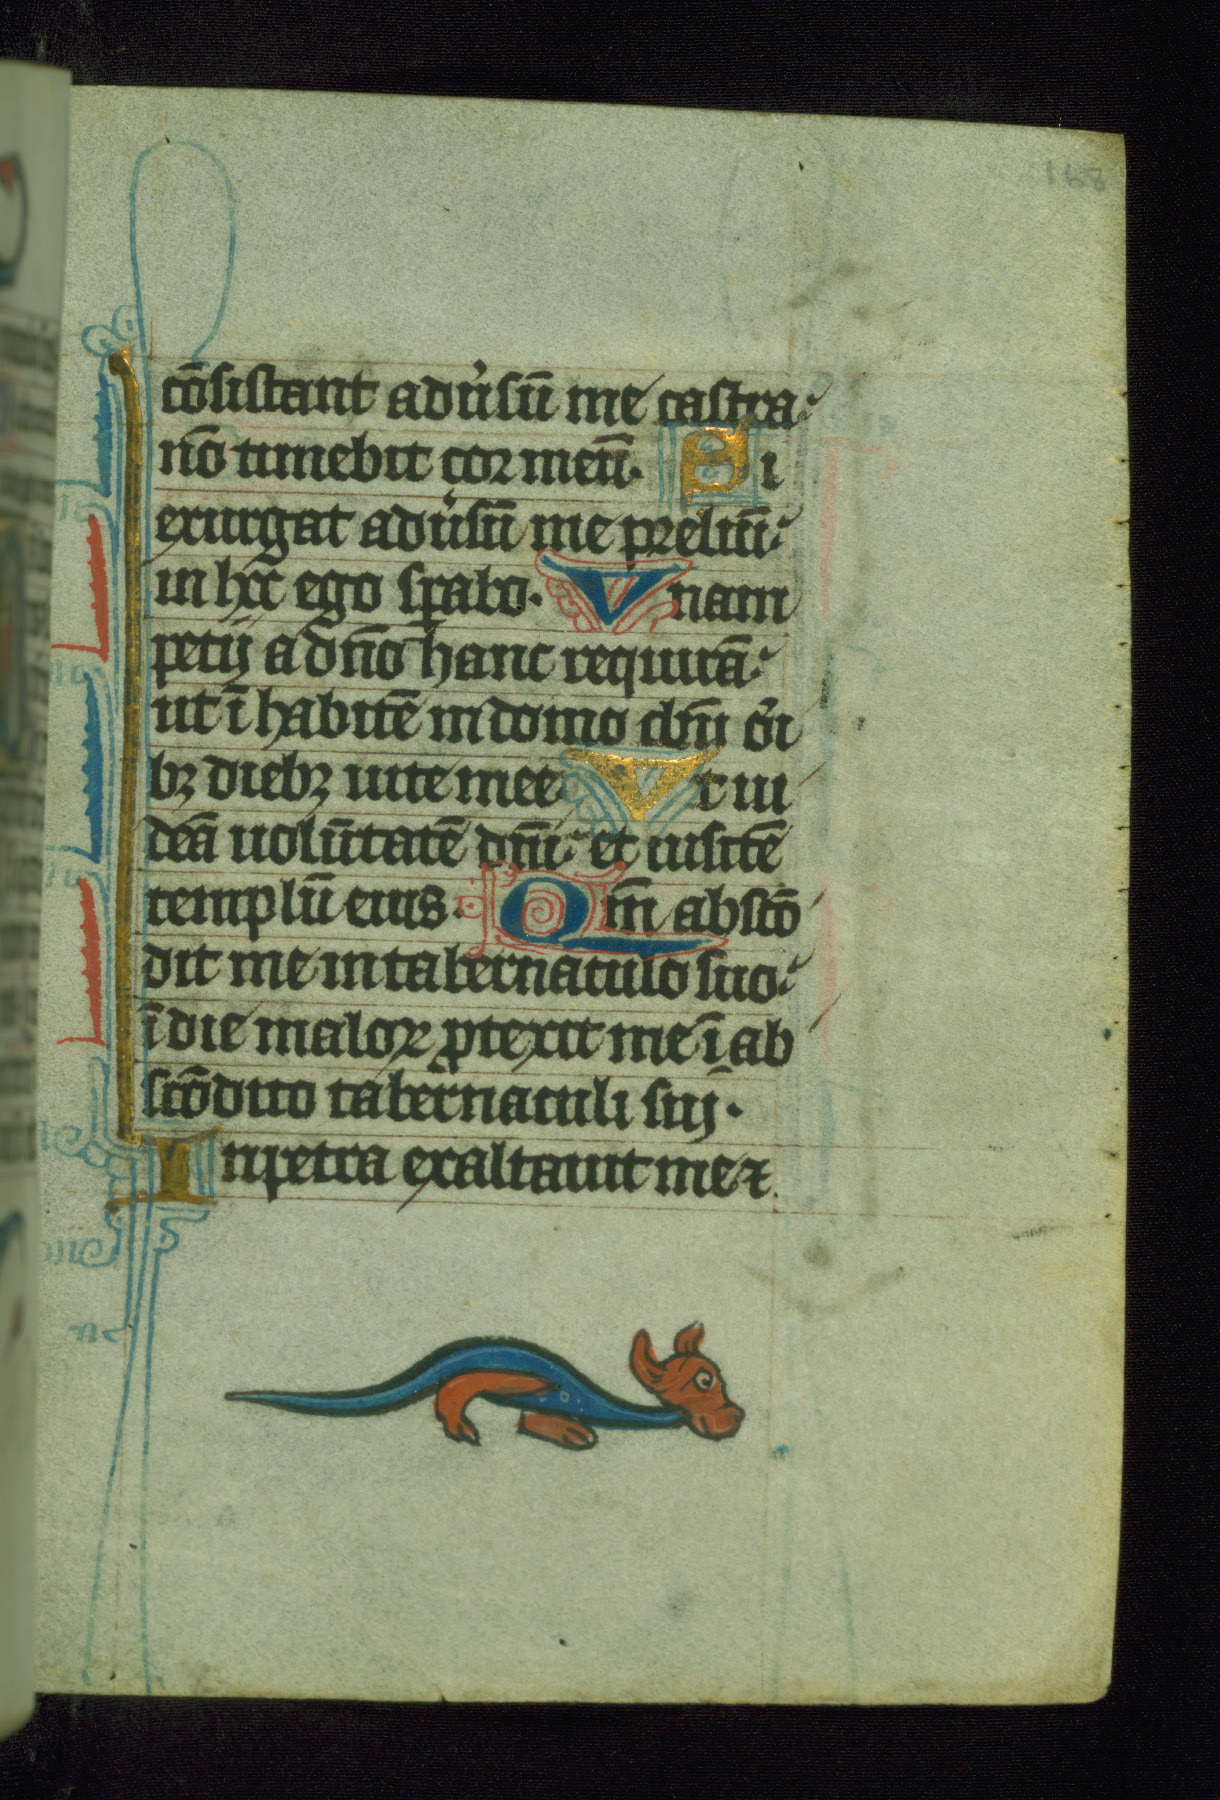 168
cōsistant adu̾sū me castra
nō timebit cor meū. Si
exurgat adu̾sū me preliū
in hoc ego sp̄abo. Vnam
petij a dn̄o hanc requirā
ut ī habitē in domo dn̄i ōi
bꝫ diebꝫ uite mee Vt ui
deā uolūtatē dn̄i et uisitē
templū eius. Qm̄ abscō
dit me in tabernaculo suo
ī die maloꝝ ꝓtexit me ī ab
scōdito tabernaculi suj.
In petra exaltauit me ⁊